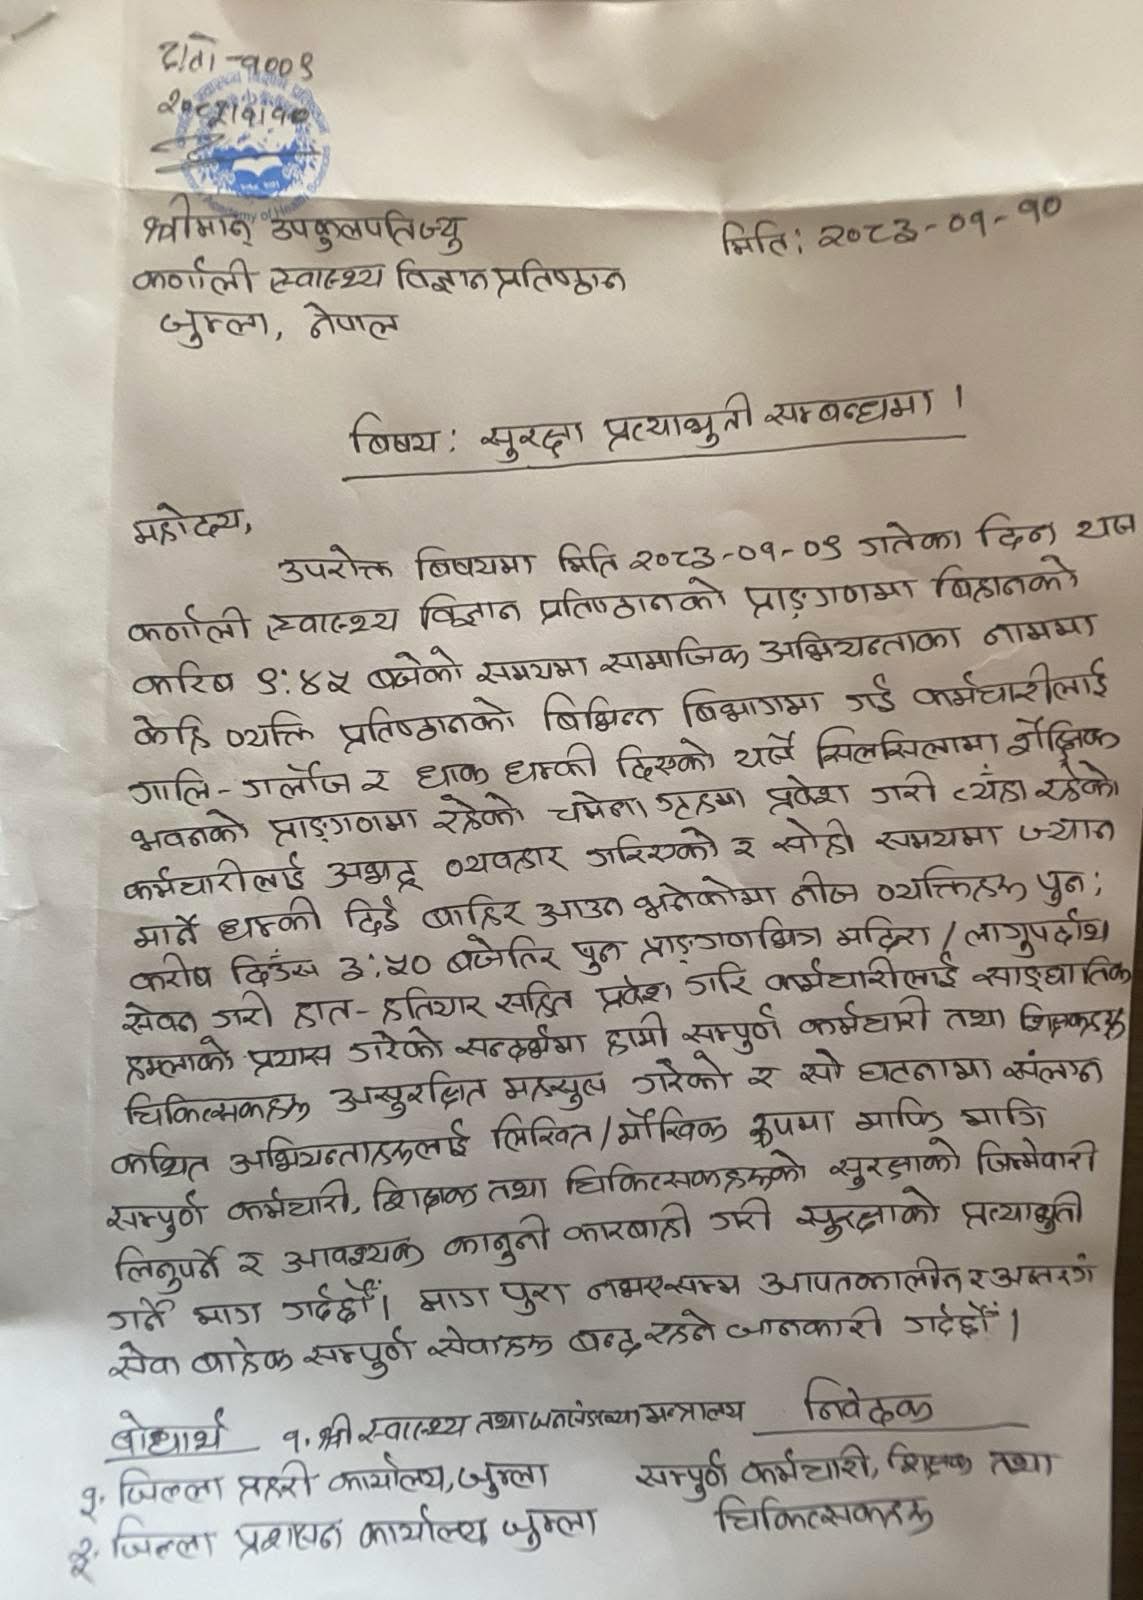 दर्ता-१००९
२०८३।१।१०
Academy of Health Sciences
श्रीमान् उपकुलपतिज्यु
मिति: २०८३-०१-१०
कर्णाली स्वास्थ्य विज्ञान प्रतिष्ठान
जुम्ला, नेपाल
बिषय: सुरक्षा प्रत्याभुती सम्बन्धमा ।
महोदय,
उपरोक्त बिषयमा मिति २०८३-०१-०९ गतेका दिन यस
कर्णाली स्वास्थ्य विज्ञान प्रतिष्ठानको प्राङ्गणमा बिहानको
करिब ९:४५ बजेको समयमा सामाजिक अभियन्ताका नाममा
केहि व्यक्ति प्रतिष्ठानको बिभिन्न बिभागमा गई कर्मचारीलाई
गालि-गलौज र धाक धम्की दिएको यसै सिलसिलामा शैक्षिक
भवनको प्राङ्गणमा रहेको चमेना गृहमा प्रवेश गरी त्यँहा रहेको
कर्मचारीलाई अभद्र व्यवहार गरिएको र सोही समयमा ज्यान
मार्ने धम्की दिई बाहिर आउन भनेकोमा नीज व्यक्तिहरू पुन:
करीब दिउँसो ३:५० बजेतिर पुन प्राङ्गणभित्र मदिरा/लागुपर्दाथ
सेवन गरी हात-हतियार सहित प्रवेश गरि कर्मचारीलाई साङ्घातिक
हमलाको प्रयास गरेको सन्दर्भमा हामी सम्पुर्ण कर्मचारी तथा शिक्षकहरू
चिकित्सकहरू असुरक्षित महसुस गरेको र सो घटनामा संलग्न
कथित अभियन्ताहरूलाई लिखित/मौखिक रूपमा माफि मागि
सम्पुर्ण कर्मचारी, शिक्षक तथा चिकित्सकहरूको सुरक्षाको जिम्मेवारी
लिनुपर्ने र आवश्यक कानुनी कारबाही गरी सुरक्षाको प्रत्याभुती
गर्न माग गर्दछौं। माग पुरा नभएसम्म आपतकालीन र अन्तरंग
सेवा बाहेक सम्पुर्ण सेवाहरू बन्द रहने जानकारी गर्दछौं।
बोधार्थ १. श्री स्वास्थ्य तथा जनसंख्या मन्त्रालय
निवेदक
२. जिल्ला प्रहरी कार्यालय, जुम्ला
सम्पुर्ण कर्मचारी, शिक्षक तथा
३. जिल्ला प्रशासन कार्यालय जुम्ला
चिकित्सकहरू